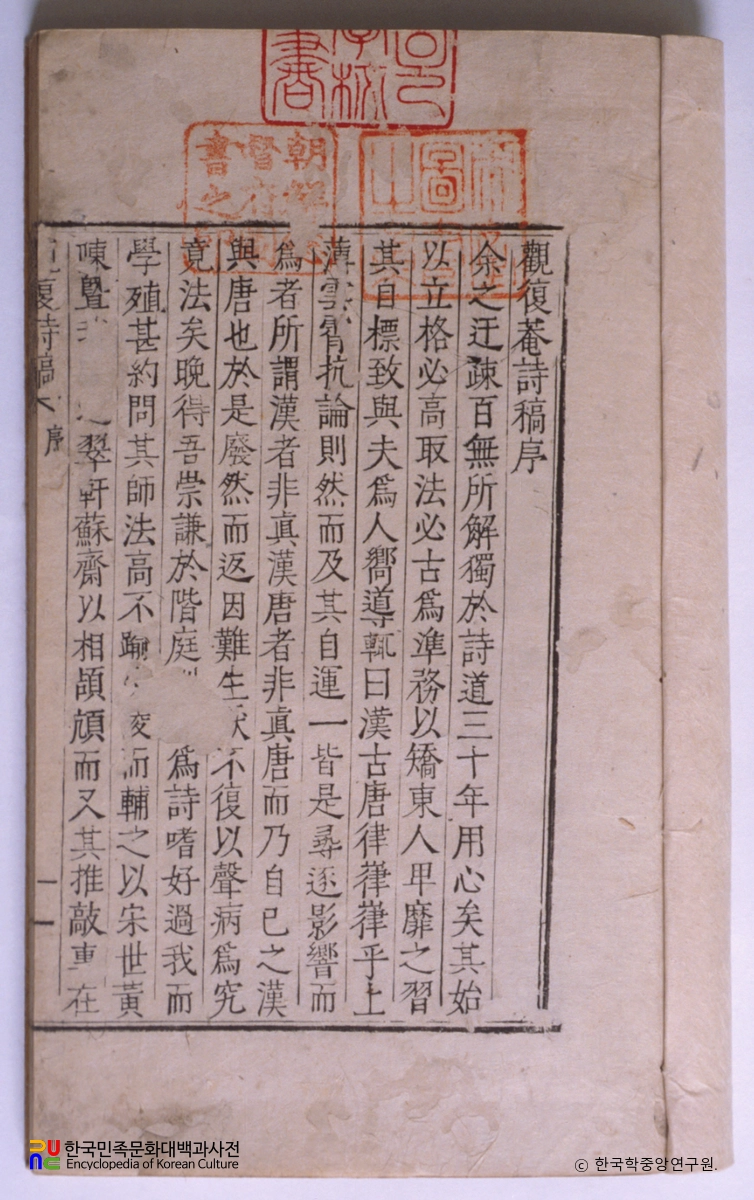 觀復菴詩稿序
余之迂疎百無所解獨於詩道三十年用心矣其始
以立格必高取法必古爲準務以矯東人卑靡之習
其自標致與夫爲人嚮導輒曰漢古唐律嵂嵂乎上
薄雲霄抗論則然而及其自運一皆是尋逐影響而
爲者所謂漢者非眞漢唐者非眞唐而乃自己之漢
與唐也於是廢然而返因難生 不復以聲病爲究
竟法矣晩得吾崇謙於階庭 爲詩嗜好過我而
學殖甚約問其師法高不踰 而輔之以宋世黃
陳曁 翠軒蘇齋以相頡頏而又其推敲 在
復詩稿 序
一
朝鮮
督府
書之
圖
書
한국민족문화대백과사전
Encyclopedia of Korean Culture
© 한국학중앙연구원.